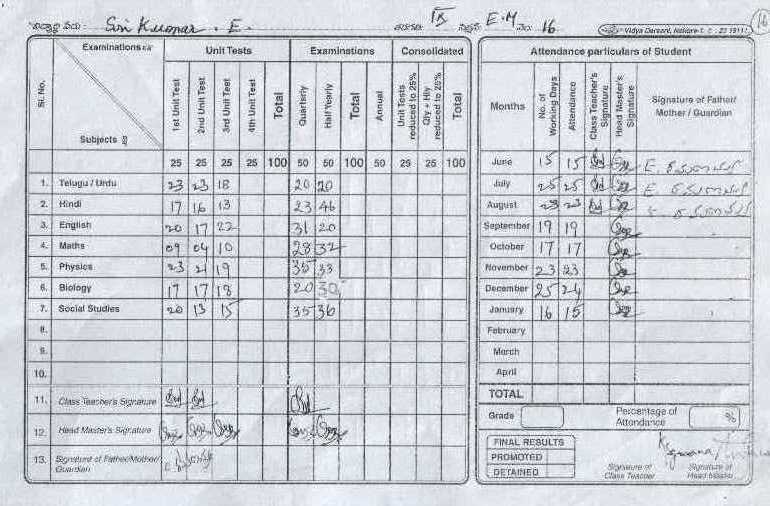 విద్యార్థి పేరు: Siri Kumar . E. తరగతి: IX సెక్షన్: E.M నెం: 16 Vidya Darsani, Nellore-1. 16
Examinations Unit Tests Examinations Consolidated
Sl. No. Subjects 1st Unit Test 2nd Unit Test 3rd Unit Test 4th Unit Test Total Quarterly Half Yearly Total Annual Unit Tests reduced to 25% Qly + Hly reduced to 25% Total
25 25 25 25 100 50 50 100 50 25 25 100
1. Telugu / Urdu 23 23 18 20 20
2. Hindi 17 16 13 23 46
3. English 20 17 22 31 20
4. Maths 09 04 10 28 32
5. Physics 23 21 19 35 33
6. Biology 17 17 18 20 30
7. Social Studies 20 13 15 35 36
8.
9.
10.
11. Class Teacher's Signature
12. Head Master's Signature
13. Signature of Father/Mother/ Guardian
Attendance particulars of Student
Months No. of Working Days Attendance Class Teacher's Signature Head Master's Signature Signature of Father/ Mother / Guardian
June 15 15 E.
July 25 25 E.
August 23 23
September 19 19
October 17 17
November 23 23
December 25 24
January 16 15
February
March
April
TOTAL
Grade Percentage of Attendance %
FINAL RESULTS
PROMOTED
DETAINED
Signature of Class Teacher Signature of Head Master